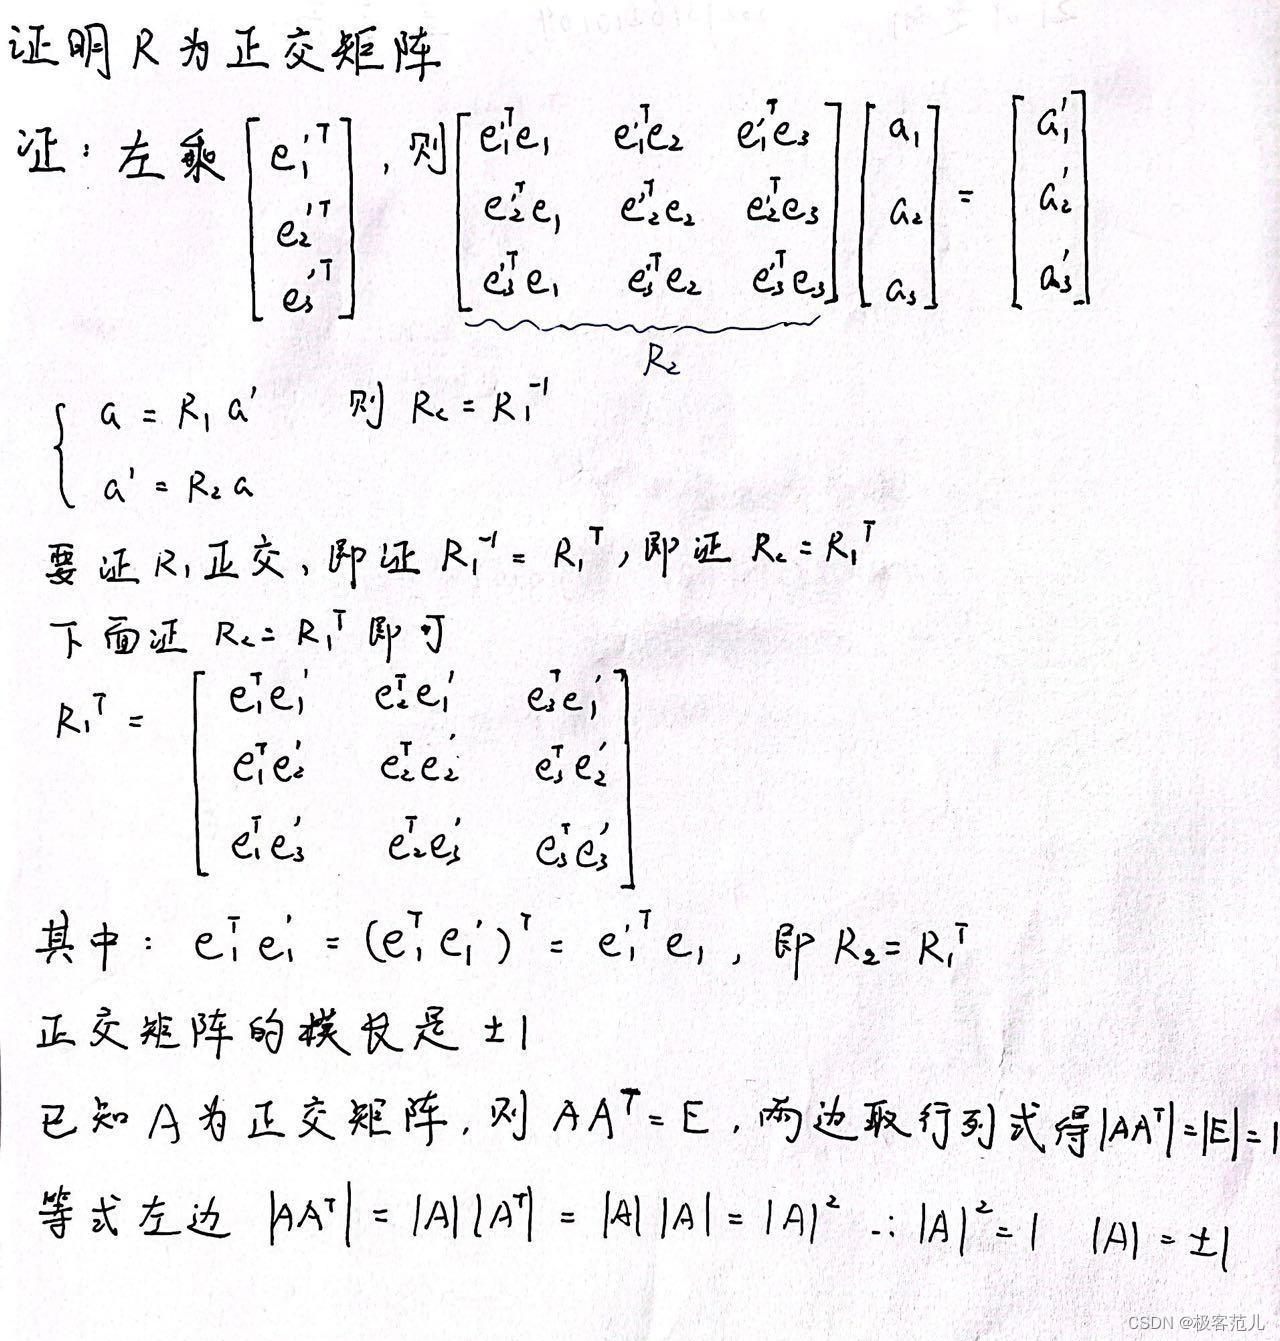 证明 R 为正交矩阵
证：左乘 [e₁'ᵀ; e₂'ᵀ; e₃'ᵀ]，则 [e₁'ᵀe₁ e₁'ᵀe₂ e₁'ᵀe₃; e₂'ᵀe₁ e₂'ᵀe₂ e₂'ᵀe₃; e₃'ᵀe₁ e₃'ᵀe₂ e₃'ᵀe₃] [a₁; a₂; a₃] = [a₁'; a₂'; a₃']
R₂
{ a = R₁ a' 则 R₂ = R₁⁻¹
a' = R₂ a
要证 R₁ 正交，即证 R₁⁻¹ = R₁ᵀ，即证 R₂ = R₁ᵀ
下面证 R₂ = R₁ᵀ 即可
R₁ᵀ = [e₁ᵀe₁' e₂ᵀe₁' e₃ᵀe₁'; e₁ᵀe₂' e₂ᵀe₂' e₃ᵀe₂'; e₁ᵀe₃' e₂ᵀe₃' e₃ᵀe₃']
其中：e₁ᵀe₁' = (e₁ᵀe₁')ᵀ = e₁'ᵀe₁，即 R₂ = R₁ᵀ
正交矩阵的模长是 ±1
已知 A 为正交矩阵，则 AAᵀ = E，两边取行列式得|AAᵀ|=|E|=1
等式左边 |AAᵀ| = |A||Aᵀ| = |A||A| = |A|² ∴|A|²=1 |A| = ±1
CSDN @极客范儿